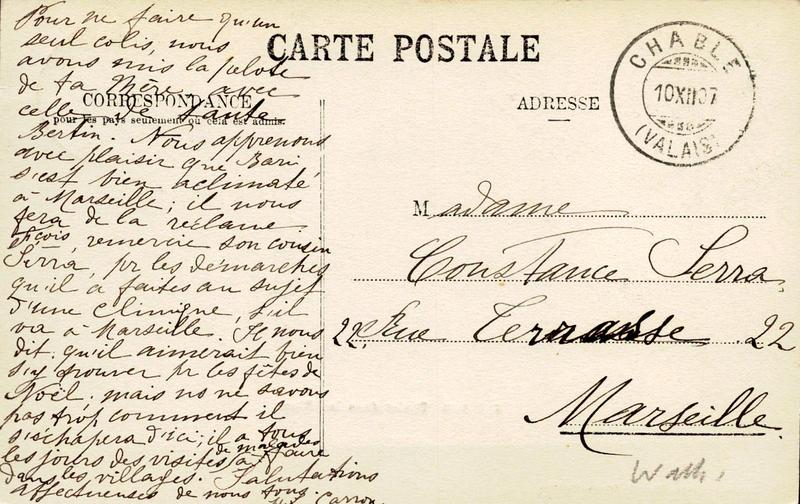 Pour ne faire qu'un
seul colis, nous
avons mis la pelote
de ta Mère avec
celle de tante
Bertin. Nous apprenons
avec plaisir que Bari
s'est bien aclimaté
à Marseille; il nous
fera de la réclame.
remercie son cousin
Serra, pr les démarches
qu'il a faites au sujet
d'une Clinique, s'il
va à Marseille. Il nous
dit, qu'il aimerait bien
s'y trouver pr les fêtes de
Noël, mais no ne savons
pas trop comment il
s'échapera d'ici; il a tous
les jours des visites de malades à faire
dans les villages. Salutations
affectueuses de nous tous.
Carron
CARTE POSTALE
CORRESPONDANCE
pour les pays seulement où cela est admis.
ADRESSE
CHABLE
10XII07
(VALAIS)
Madame
Constance Serra
22, Rue Terrusse 22
Marseille